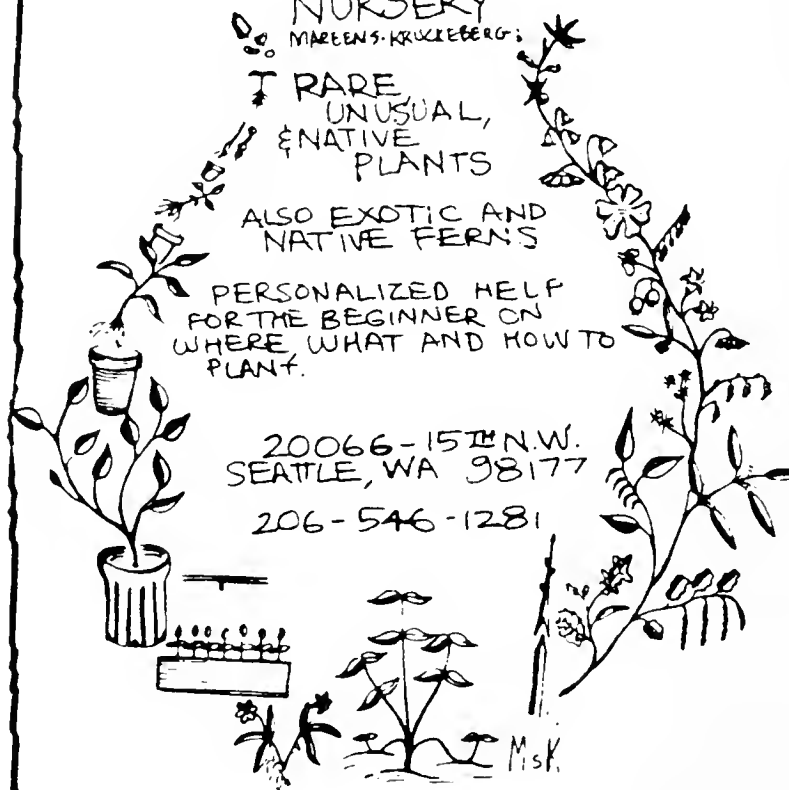 NURSERY
MAREEN S. KRUCKEBERG:
RARE,
UNUSUAL,
& NATIVE
PLANTS
ALSO EXOTIC AND
NATIVE FERNS
PERSONALIZED HELP
FOR THE BEGINNER ON
WHERE, WHAT AND HOW TO
PLANT.
20066-15TH N.W.
SEATTLE, WA 98177
206-546-1281
MsK.